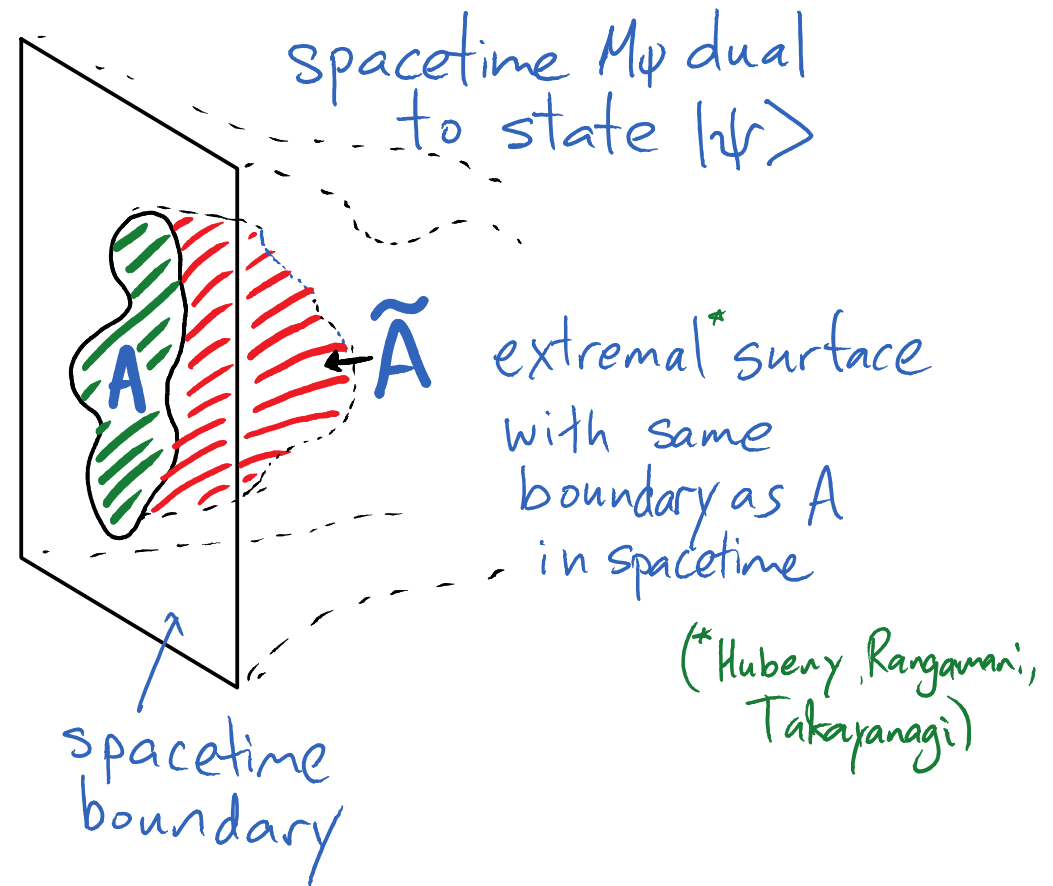 spacetime Mψ dual
to state |ψ>
A
Ã
extremal* surface
with same
boundary as A
in spacetime
(*Hubeny, Rangamani,
Takayanagi)
spacetime
boundary